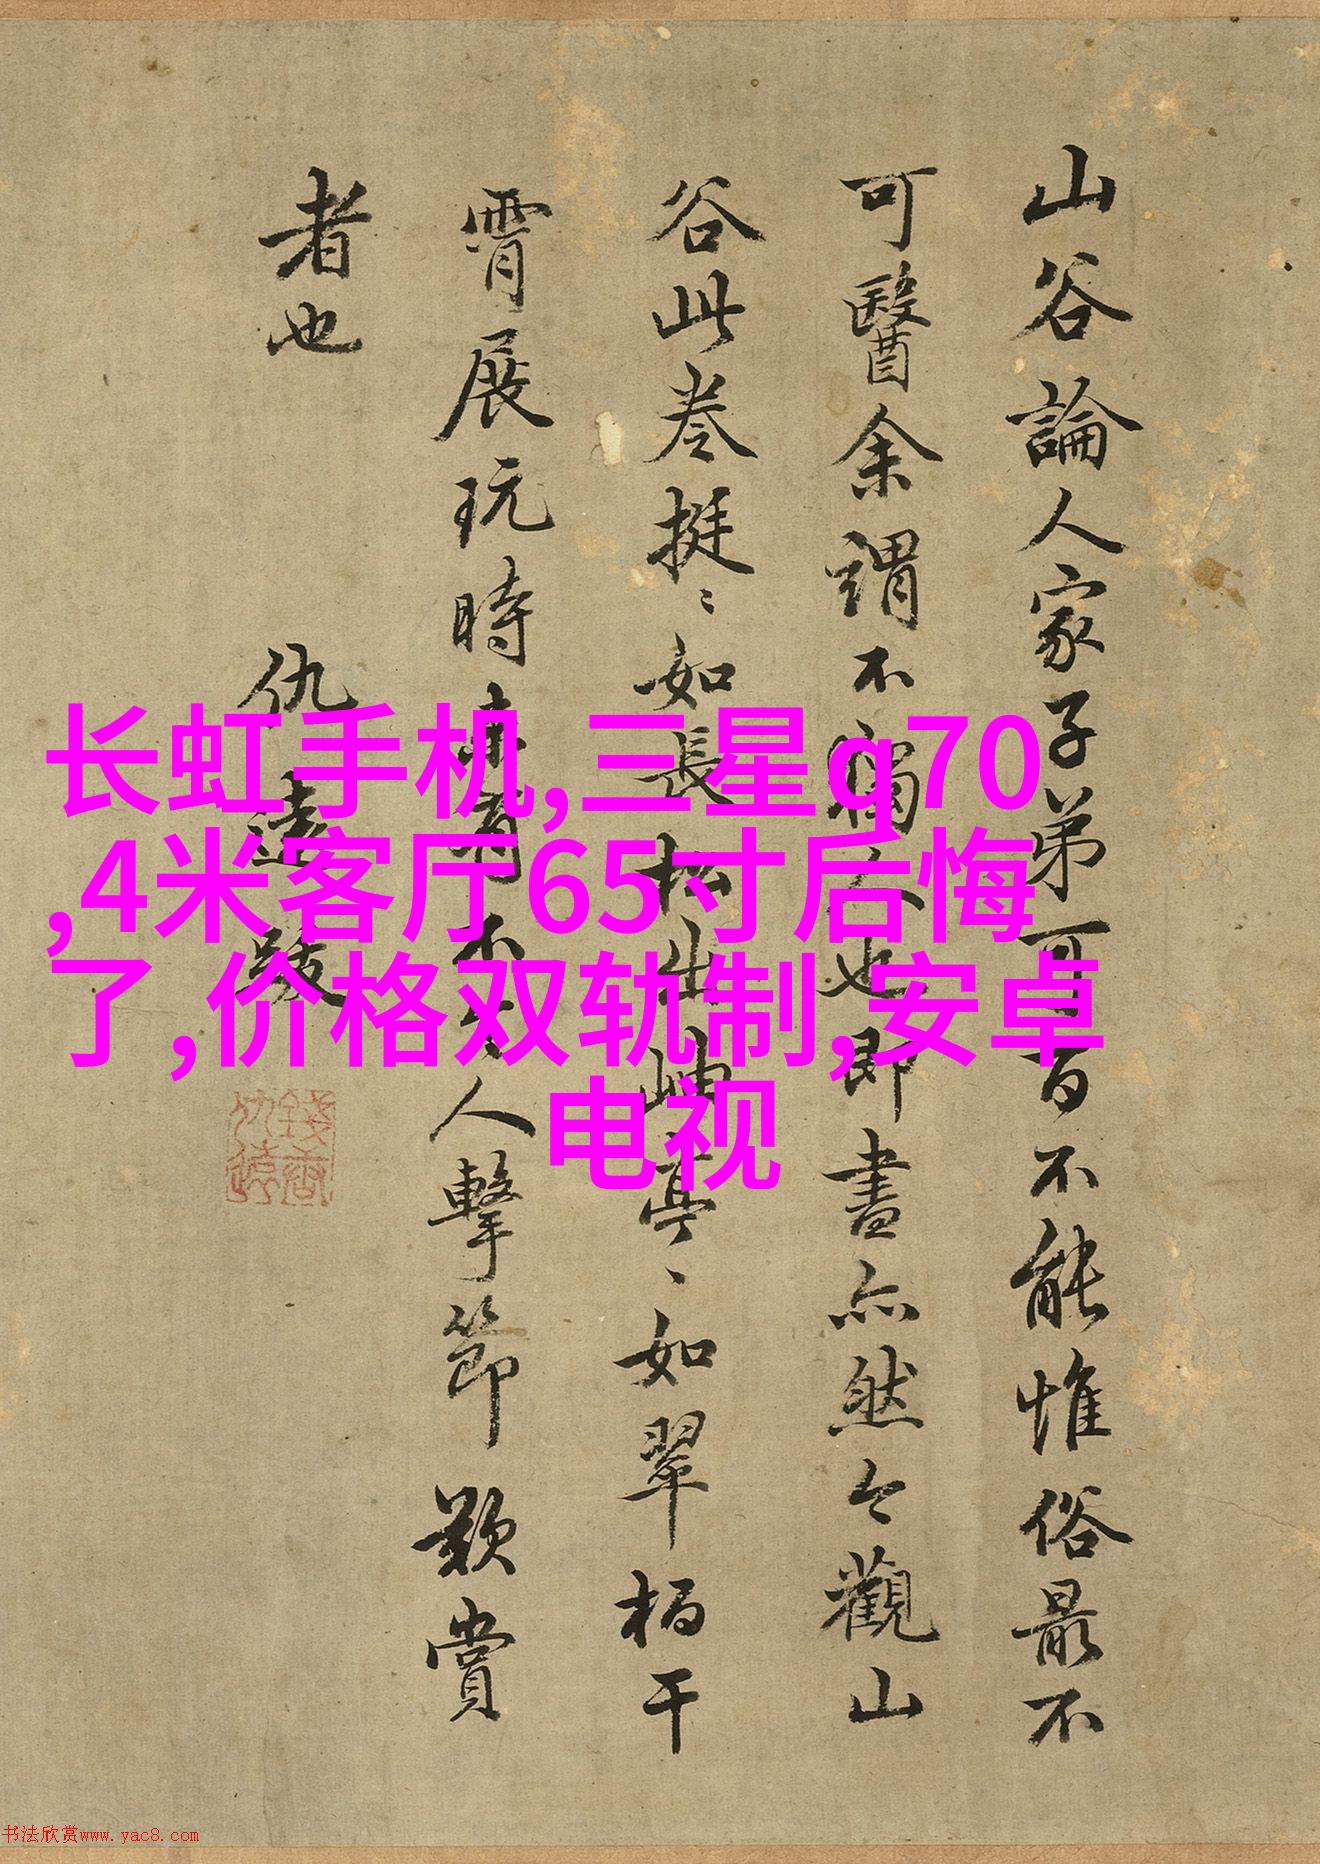 山谷論人家子弟可百不能惟俗最不
可醫余謂不獨人也即書亦然今觀山
谷此卷挺〻如長松出岫亭〻如翠柏干
霄展玩時未有不令人擊節歎賞
者也
仇遠跋
长虹手机,三星q70
,4米客厅65寸后悔
了,价格双轨制,安卓
电视
书法欣赏www.yac8.com